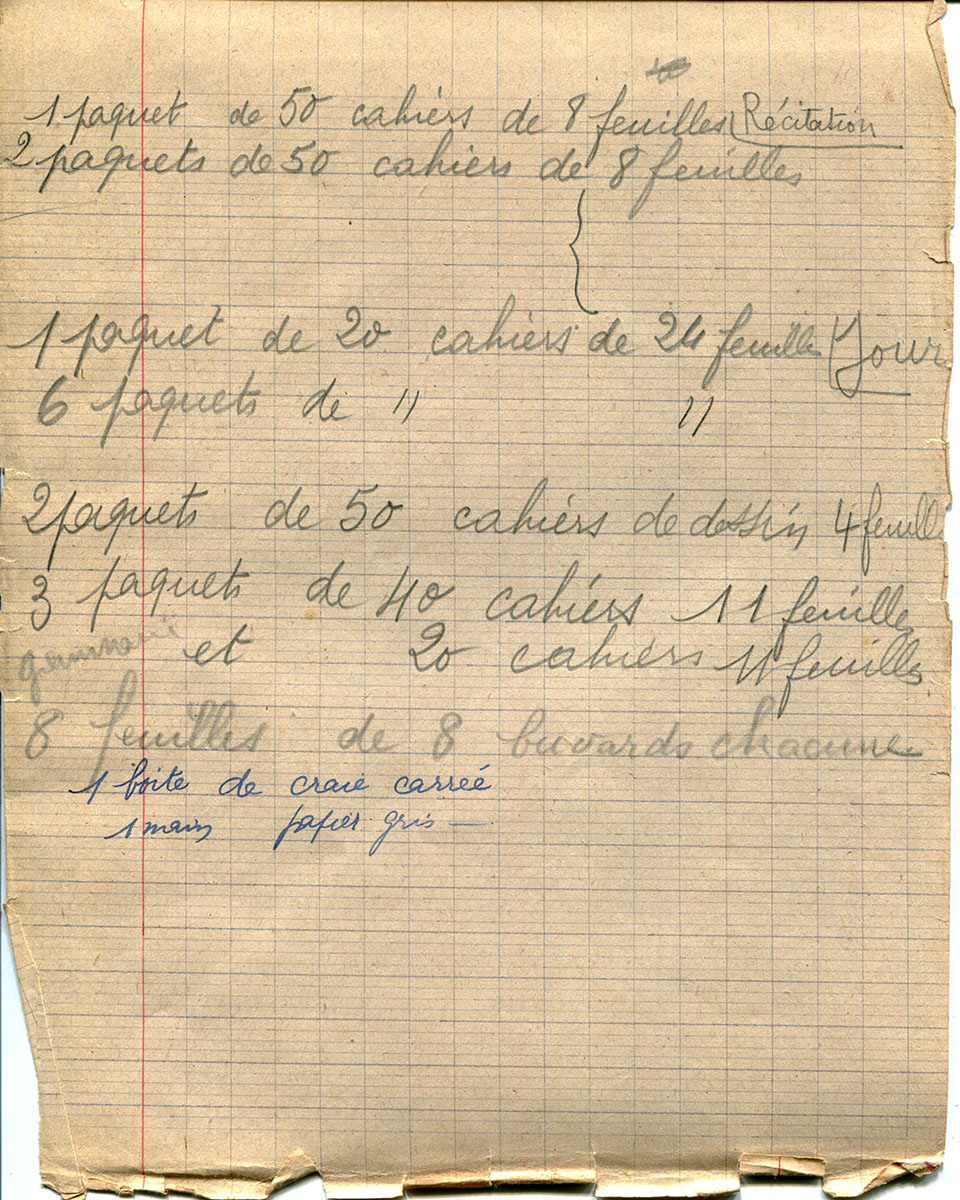 1 paquet de 50 cahiers de 8 feuilles (Récitation
2 paquets de 50 cahiers de 8 feuilles
1 paquet de 20 cahiers de 24 feuilles (Jour
6 paquets de " "
2 paquets de 50 cahiers de dessin 4 feuilles
3 paquets de 40 cahiers 11 feuilles
et 20 cahiers 11 feuilles
8 feuilles de 8 buvards chacune
1 boite de craie carreé
1 main papier gris —